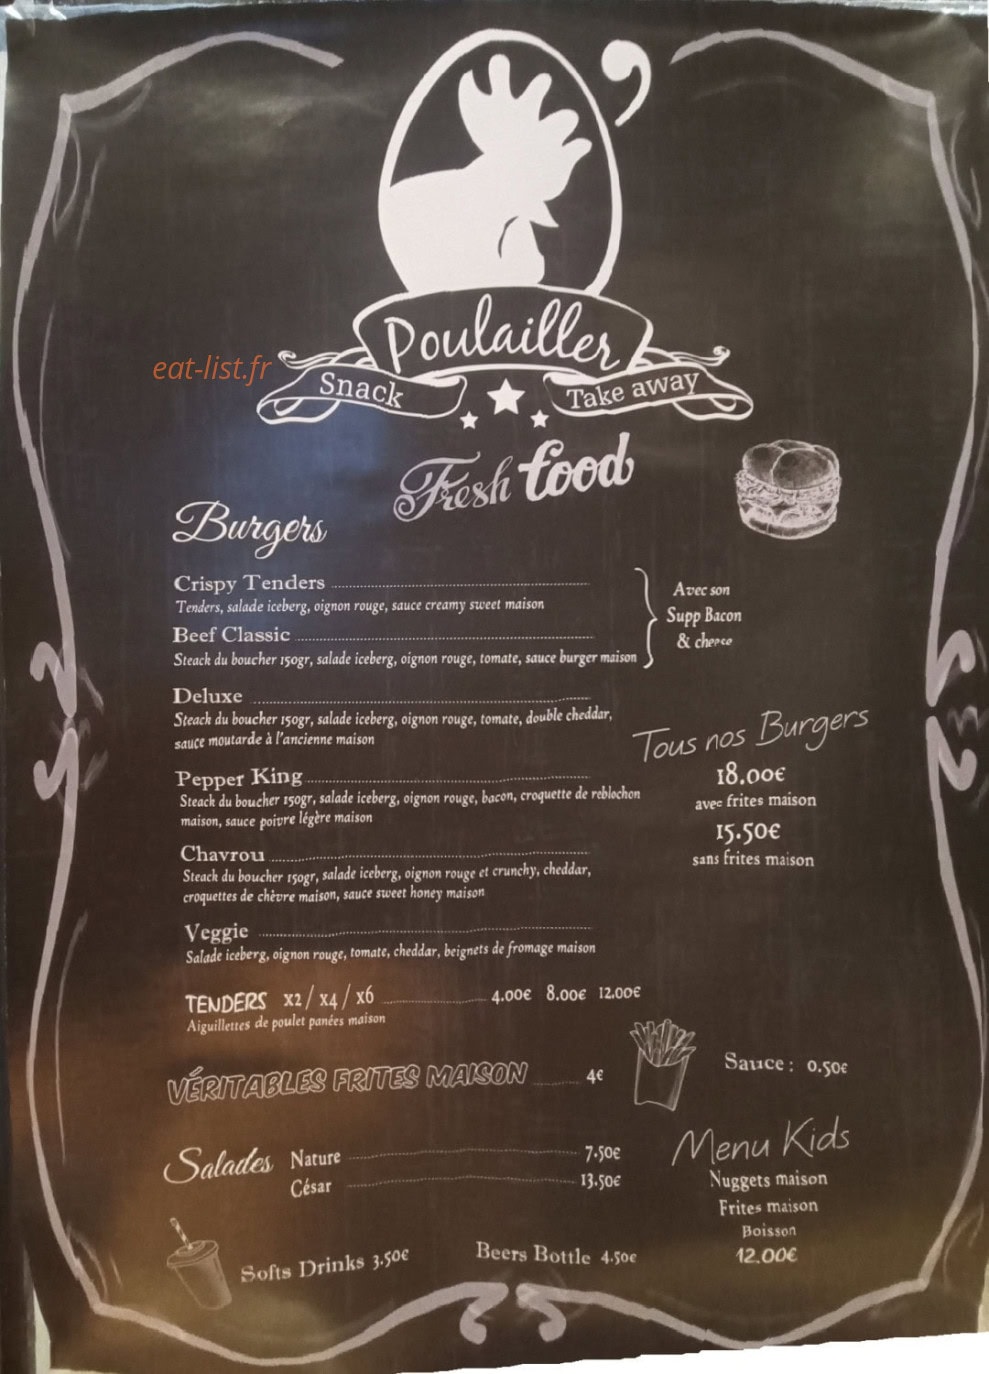 Poulailler'
eat-list.fr
Snack
Take away
Fresh food
Burgers
Crispy Tenders
Tenders, salade iceberg, oignon rouge, sauce creamy sweet maison
Beef Classic
Steack du boucher 150gr, salade iceberg, oignon rouge, tomate, sauce burger maison
Avec son
Supp Bacon
& cheese
Deluxe
Steack du boucher 150gr, salade iceberg, oignon rouge, tomate, double cheddar,
sauce moutarde à l'ancienne maison
Pepper King
Steack du boucher 150gr, salade iceberg, oignon rouge, bacon, croquette de reblochon
maison, sauce poivre légère maison
Chavrou
Steack du boucher 150gr, salade iceberg, oignon rouge et crunchy, cheddar,
croquettes de chèvre maison, sauce sweet honey maison
Veggie
Salade iceberg, oignon rouge, tomate, cheddar, beignets de fromage maison
Tous nos Burgers
18.00€
avec frites maison
15.50€
sans frites maison
TENDERS x2 / x4 / x6 4.00€ 8.00€ 12.00€
Aiguillettes de poulet panées maison
VÉRITABLES FRITES MAISON 4€
Sauce : 0.50€
Salades
Nature 7.50€
César 13.50€
Menu Kids
Nuggets maison
Frites maison
Boisson
12.00€
Softs Drinks 3.50€
Beers Bottle 4.50€